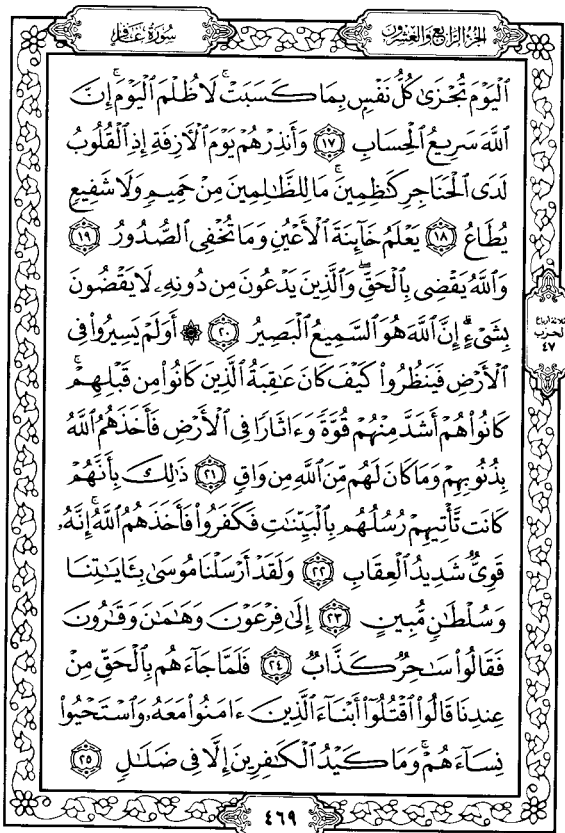 سُورَةُ غَافِرٍ
الجُزْءُ الرَّابِعُ وَالعِشْرُونَ
ٱلْيَوْمَ تُجْزَىٰ كُلُّ نَفْسٍۭ بِمَا كَسَبَتْ ۚ لَا ظُلْمَ ٱلْيَوْمَ ۚ إِنَّ
ٱللَّهَ سَرِيعُ ٱلْحِسَابِ ١٧ وَأَنذِرْهُمْ يَوْمَ ٱلْأَزِفَةِ إِذِ ٱلْقُلُوبُ
لَدَى ٱلْحَنَاجِرِ كَـٰظِمِينَ ۚ مَا لِلظَّـٰلِمِينَ مِنْ حَمِيمٍ وَلَا شَفِيعٍ
يُطَاعُ ١٨ يَعْلَمُ خَآئِنَةَ ٱلْأَعْيُنِ وَمَا تُخْفِى ٱلصُّدُورُ ١٩
وَٱللَّهُ يَقْضِى بِٱلْحَقِّ ۖ وَٱلَّذِينَ يَدْعُونَ مِن دُونِهِۦ لَا يَقْضُونَ
بِشَىْءٍ ۗ إِنَّ ٱللَّهَ هُوَ ٱلسَّمِيعُ ٱلْبَصِيرُ ٢٠ ۞ أَوَلَمْ يَسِيرُوا۟ فِى
ٱلْأَرْضِ فَيَنظُرُوا۟ كَيْفَ كَانَ عَـٰقِبَةُ ٱلَّذِينَ كَانُوا۟ مِن قَبْلِهِمْ ۚ
كَانُوا۟ هُمْ أَشَدَّ مِنْهُمْ قُوَّةً وَءَاثَارًا فِى ٱلْأَرْضِ فَأَخَذَهُمُ ٱللَّهُ
بِذُنُوبِهِمْ وَمَا كَانَ لَهُم مِّنَ ٱللَّهِ مِن وَاقٍ ٢١ ذَٰلِكَ بِأَنَّهُمْ
كَانَت تَّأْتِيهِمْ رُسُلُهُم بِٱلْبَيِّنَـٰتِ فَكَفَرُوا۟ فَأَخَذَهُمُ ٱللَّهُ ۚ إِنَّهُۥ
قَوِىٌّ شَدِيدُ ٱلْعِقَابِ ٢٢ وَلَقَدْ أَرْسَلْنَا مُوسَىٰ بِـَٔايَـٰتِنَا
وَسُلْطَـٰنٍ مُّبِينٍ ٢٣ إِلَىٰ فِرْعَوْنَ وَهَـٰمَـٰنَ وَقَـٰرُونَ
فَقَالُوا۟ سَـٰحِرٌ كَذَّابٌ ٢٤ فَلَمَّا جَآءَهُم بِٱلْحَقِّ مِنْ
عِندِنَا قَالُوا۟ ٱقْتُلُوٓا۟ أَبْنَآءَ ٱلَّذِينَ ءَامَنُوا۟ مَعَهُۥ وَٱسْتَحْيُوا۟
نِسَآءَهُمْ ۚ وَمَا كَيْدُ ٱلْكَـٰفِرِينَ إِلَّا فِى ضَلَـٰلٍ ٢٥
ثلاثة أرباع
الحزب
٤٧
٤٦٩